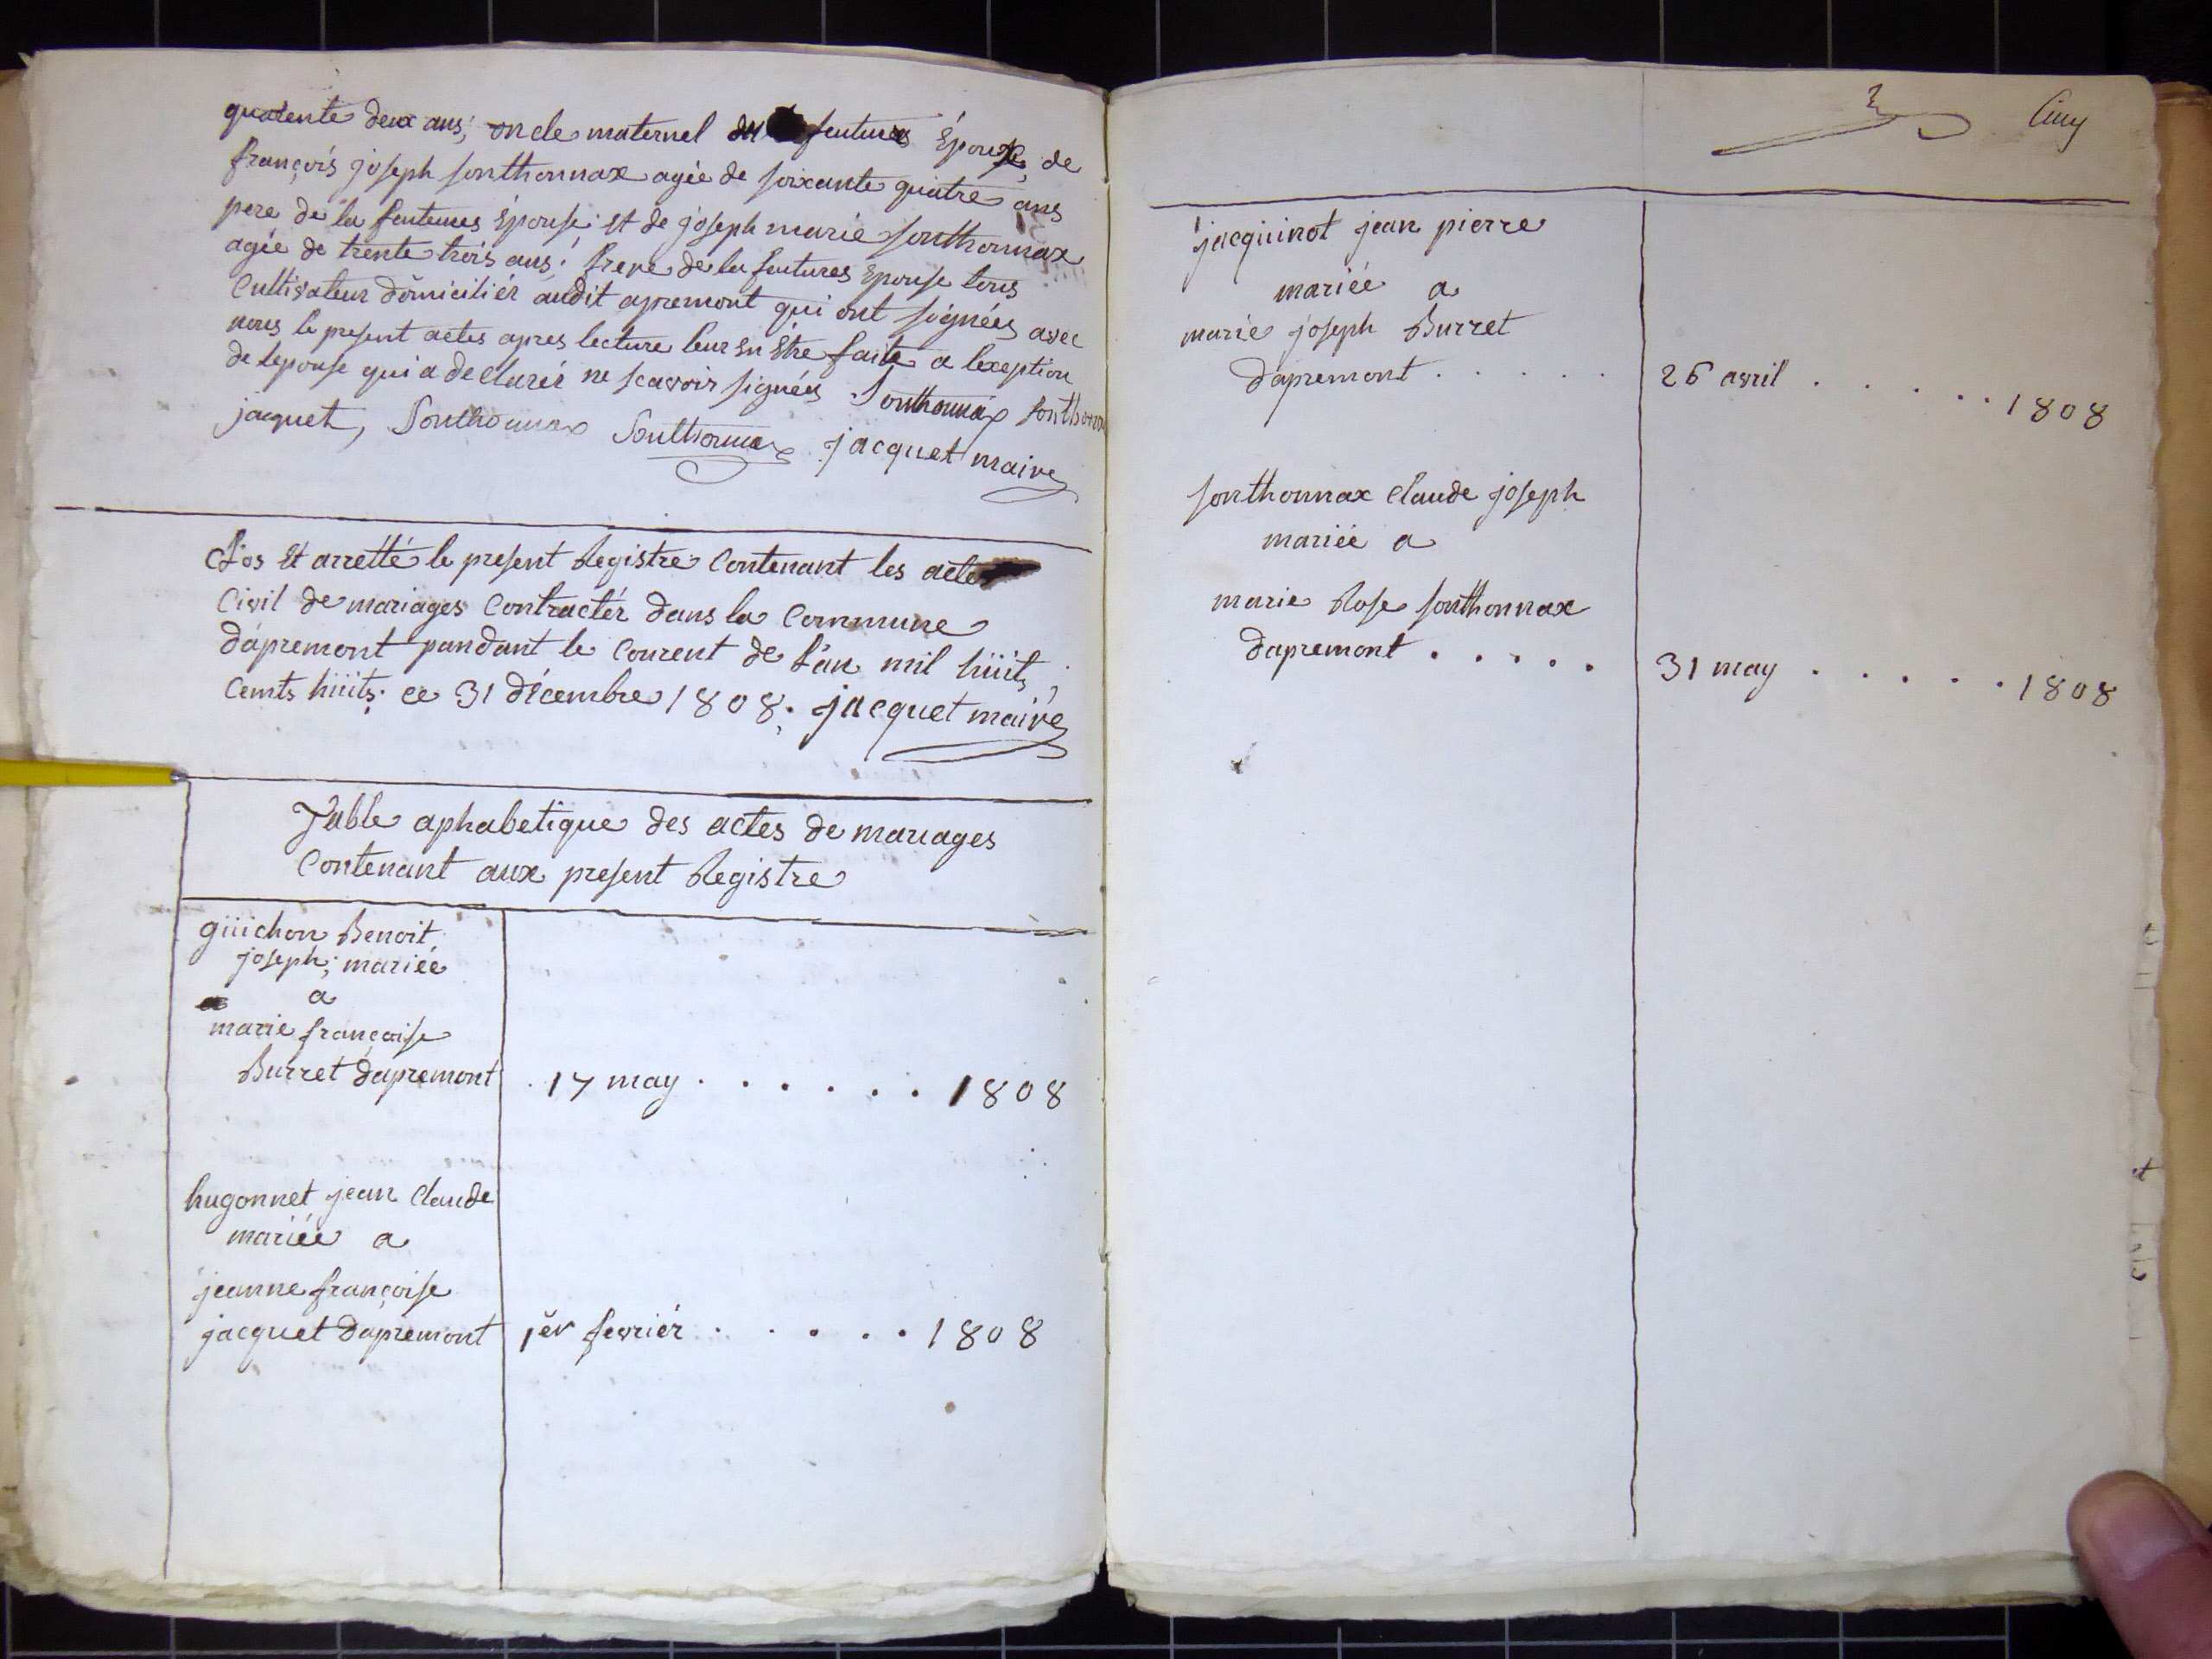 quarente deux ans; oncle maternel du futures Épouse, de
françois joseph sonthonnax agée de soixante quatre ans
pere de la feutures Épouse. et de joseph marie sonthonnax
agée de trente trois ans; frere de la feutures Epouse tous
Cultivateur domiciliér audit apremont qui ont signées avec
nous le present actes apres lecture leur En Etre faite a lexeption
de lepouse qui a declarér ne scavoir signées Sonthonnax
jacquet, Sonthonnax Sonthonnax jacquet maire
Clos Et arretté le present Registre Contenant les actes
Civil de mariages Contractér dans la Commune
dapremont pandant le Courent de l'an mil huits
Cents huits. ce 31 décembre 1808. jacquet maire
Table aphabetique des actes de mariages
Contenant aux present Registre
guichon Benoit
joseph; mariéé
a
marie françoise
Burret dapremont . 17 may . . . . . . 1808
hugonnet jean Claude
mariéé a
jeanne françoise
jacquet dapremont 1er fevriér . . . . . 1808
Cinq
jacquinot jean pierre
mariéé a
marie joseph Burret
dapremont . . . . . 26 avril . . . . . 1808
sonthonnax Claude joseph
mariéé a
marie Rose sonthonnax
dapremont . . . . . 31 may . . . . . 1808